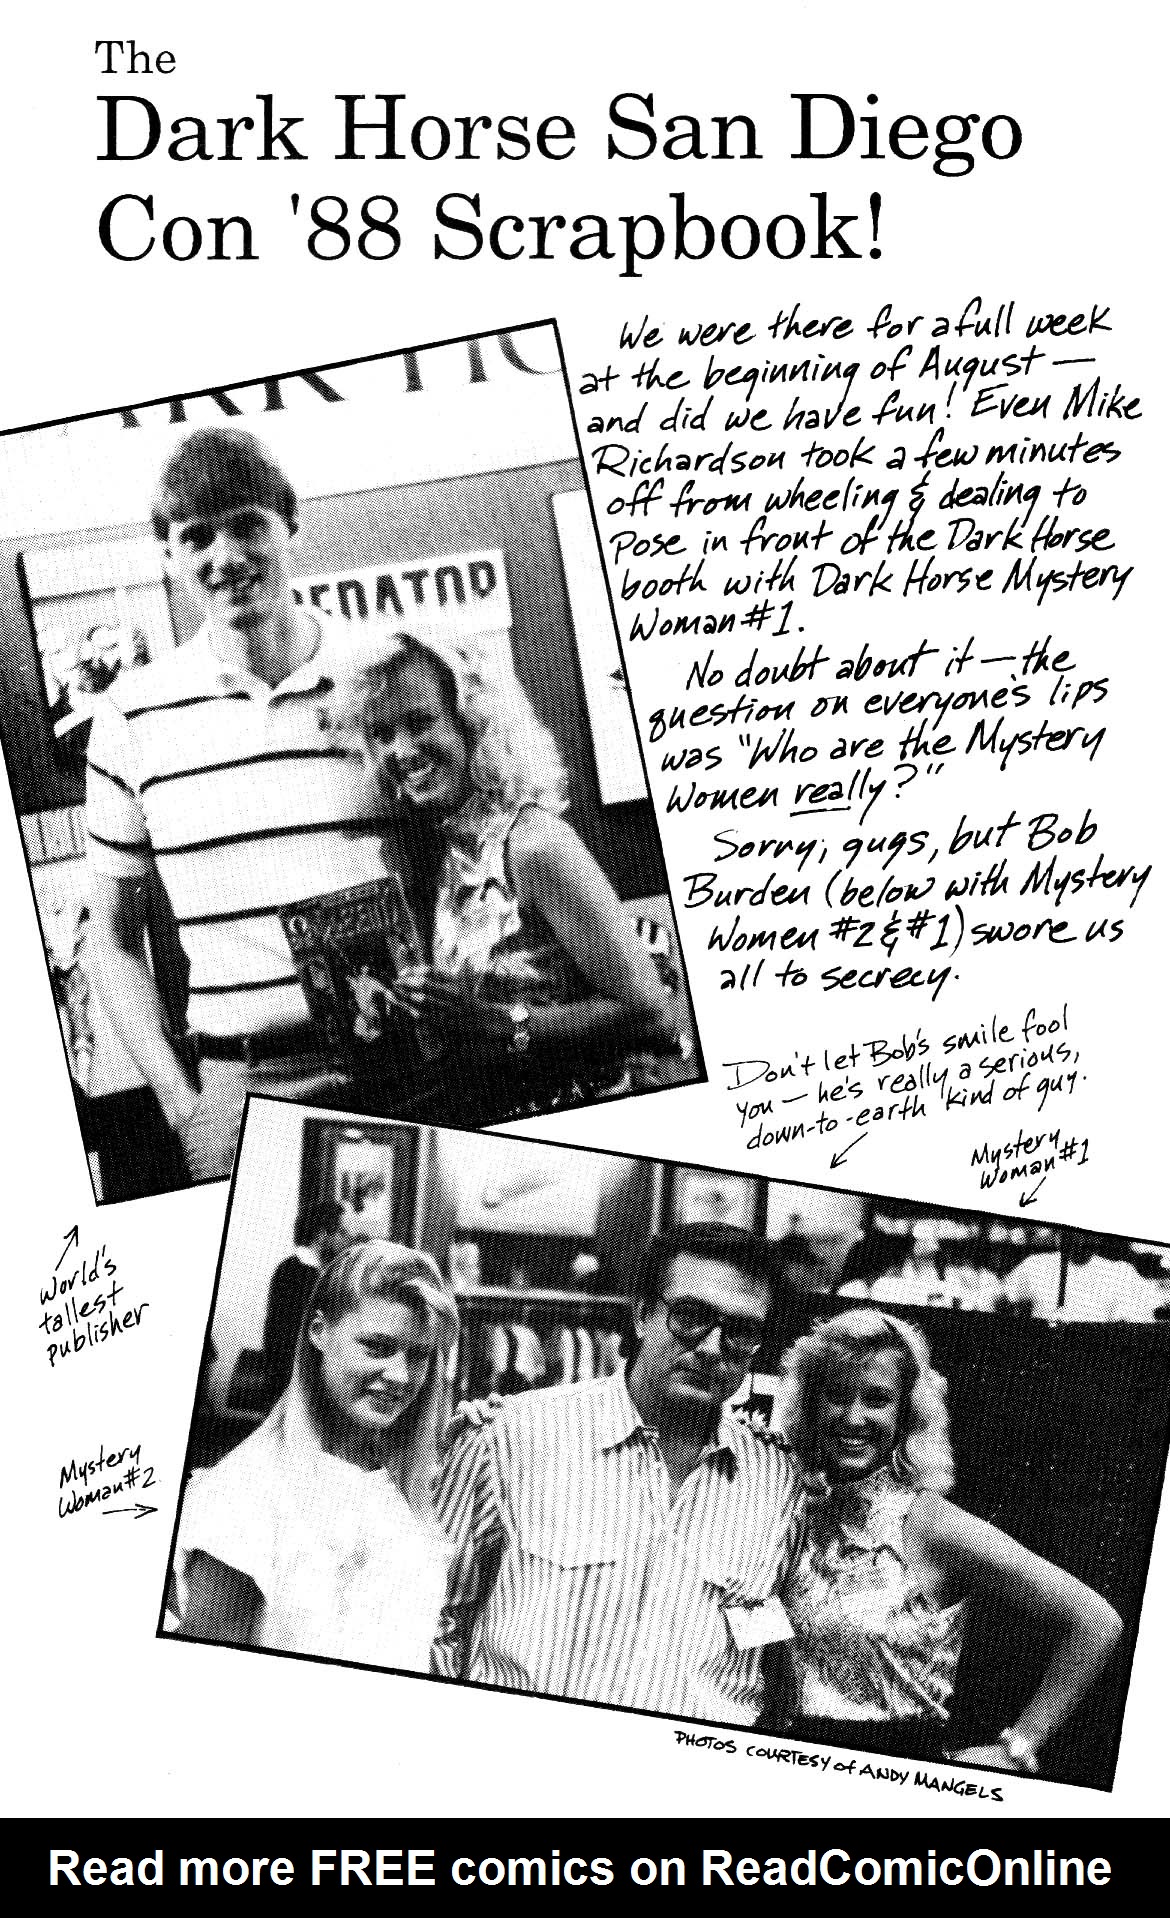 The
Dark Horse San Diego
Con '88 Scrapbook!
We were there for a full week
at the beginning of August —
and did we have fun! Even Mike
Richardson took a few minutes
off from wheeling & dealing to
pose in front of the Dark Horse
booth with Dark Horse Mystery
Woman #1.
No doubt about it — the
question on everyone's lips
was "Who are the Mystery
Women really?"
Sorry, guys, but Bob
Burden (below with Mystery
Women #2 & #1) swore us
all to secrecy.
ARK HO
REDATOR
Don't let Bob's smile fool
you — he's really a serious,
down-to-earth kind of guy.
Mystery
Woman #1
World's
tallest
publisher
Mystery
Woman #2
PHOTOS COURTESY of ANDY MANGELS
Read more FREE comics on ReadComicOnline